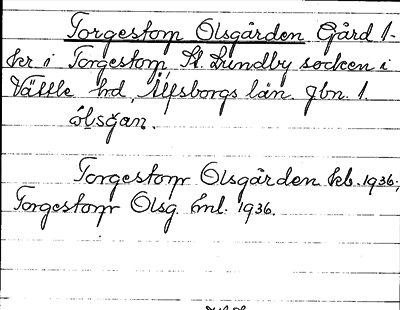 Torgestorp Olsgården Gård 1-
kr i Torgestorp, St. Lundby socken i
Vättle hd, Älfsborgs län. Jbn. 1.
òlsgan.
Torgestorp Olsgården kb. 1936;
Torgestorp Olsg. hml. 1936.